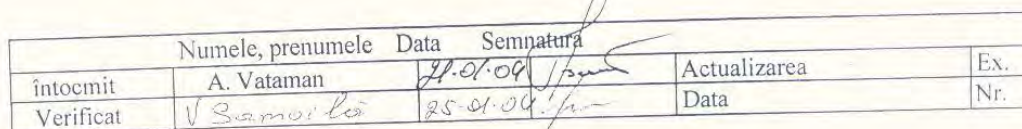 Numele, prenumele Data Semnatura
întocmit A. Vataman 21.01.09 Actualizarea Ex.
Verificat V Samoilă 25.01.09 Data Nr.